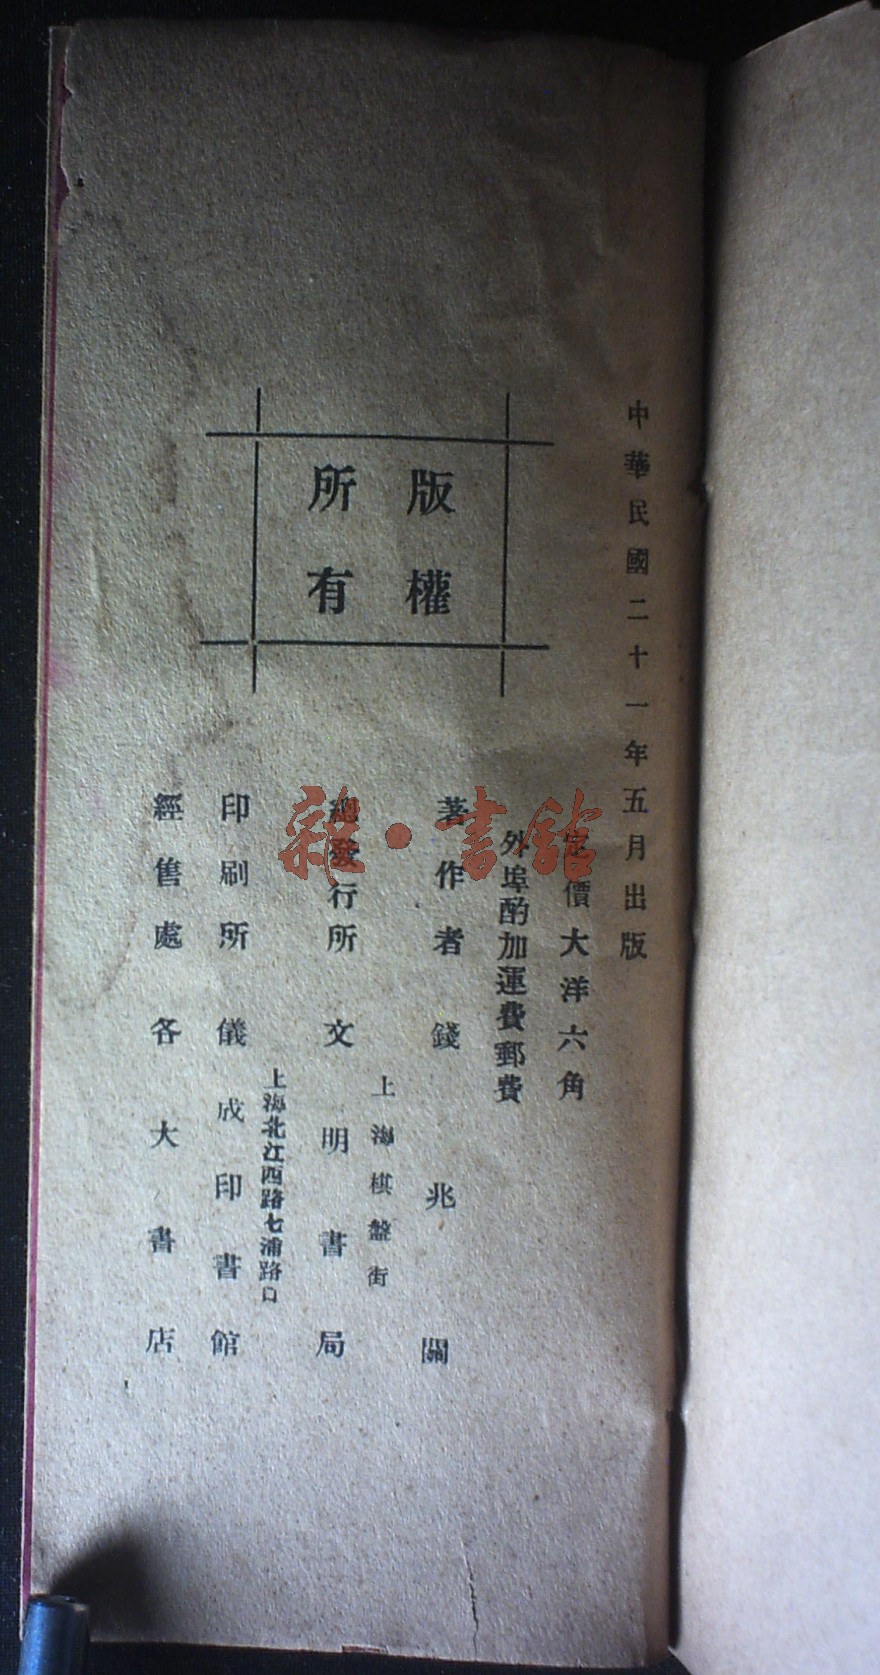 中華民國二十一年五月出版
定價大洋六角
外埠酌加運費郵費
版權
所有
著作者 錢兆關
上海棋盤街
總發行所 文明書局
上海北江西路七浦路口
印刷所 儀成印書館
經售處 各大書店
雜·書館